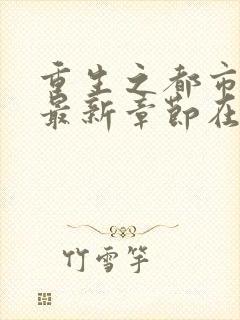 重生之都市
最新章节在
竹雪竽